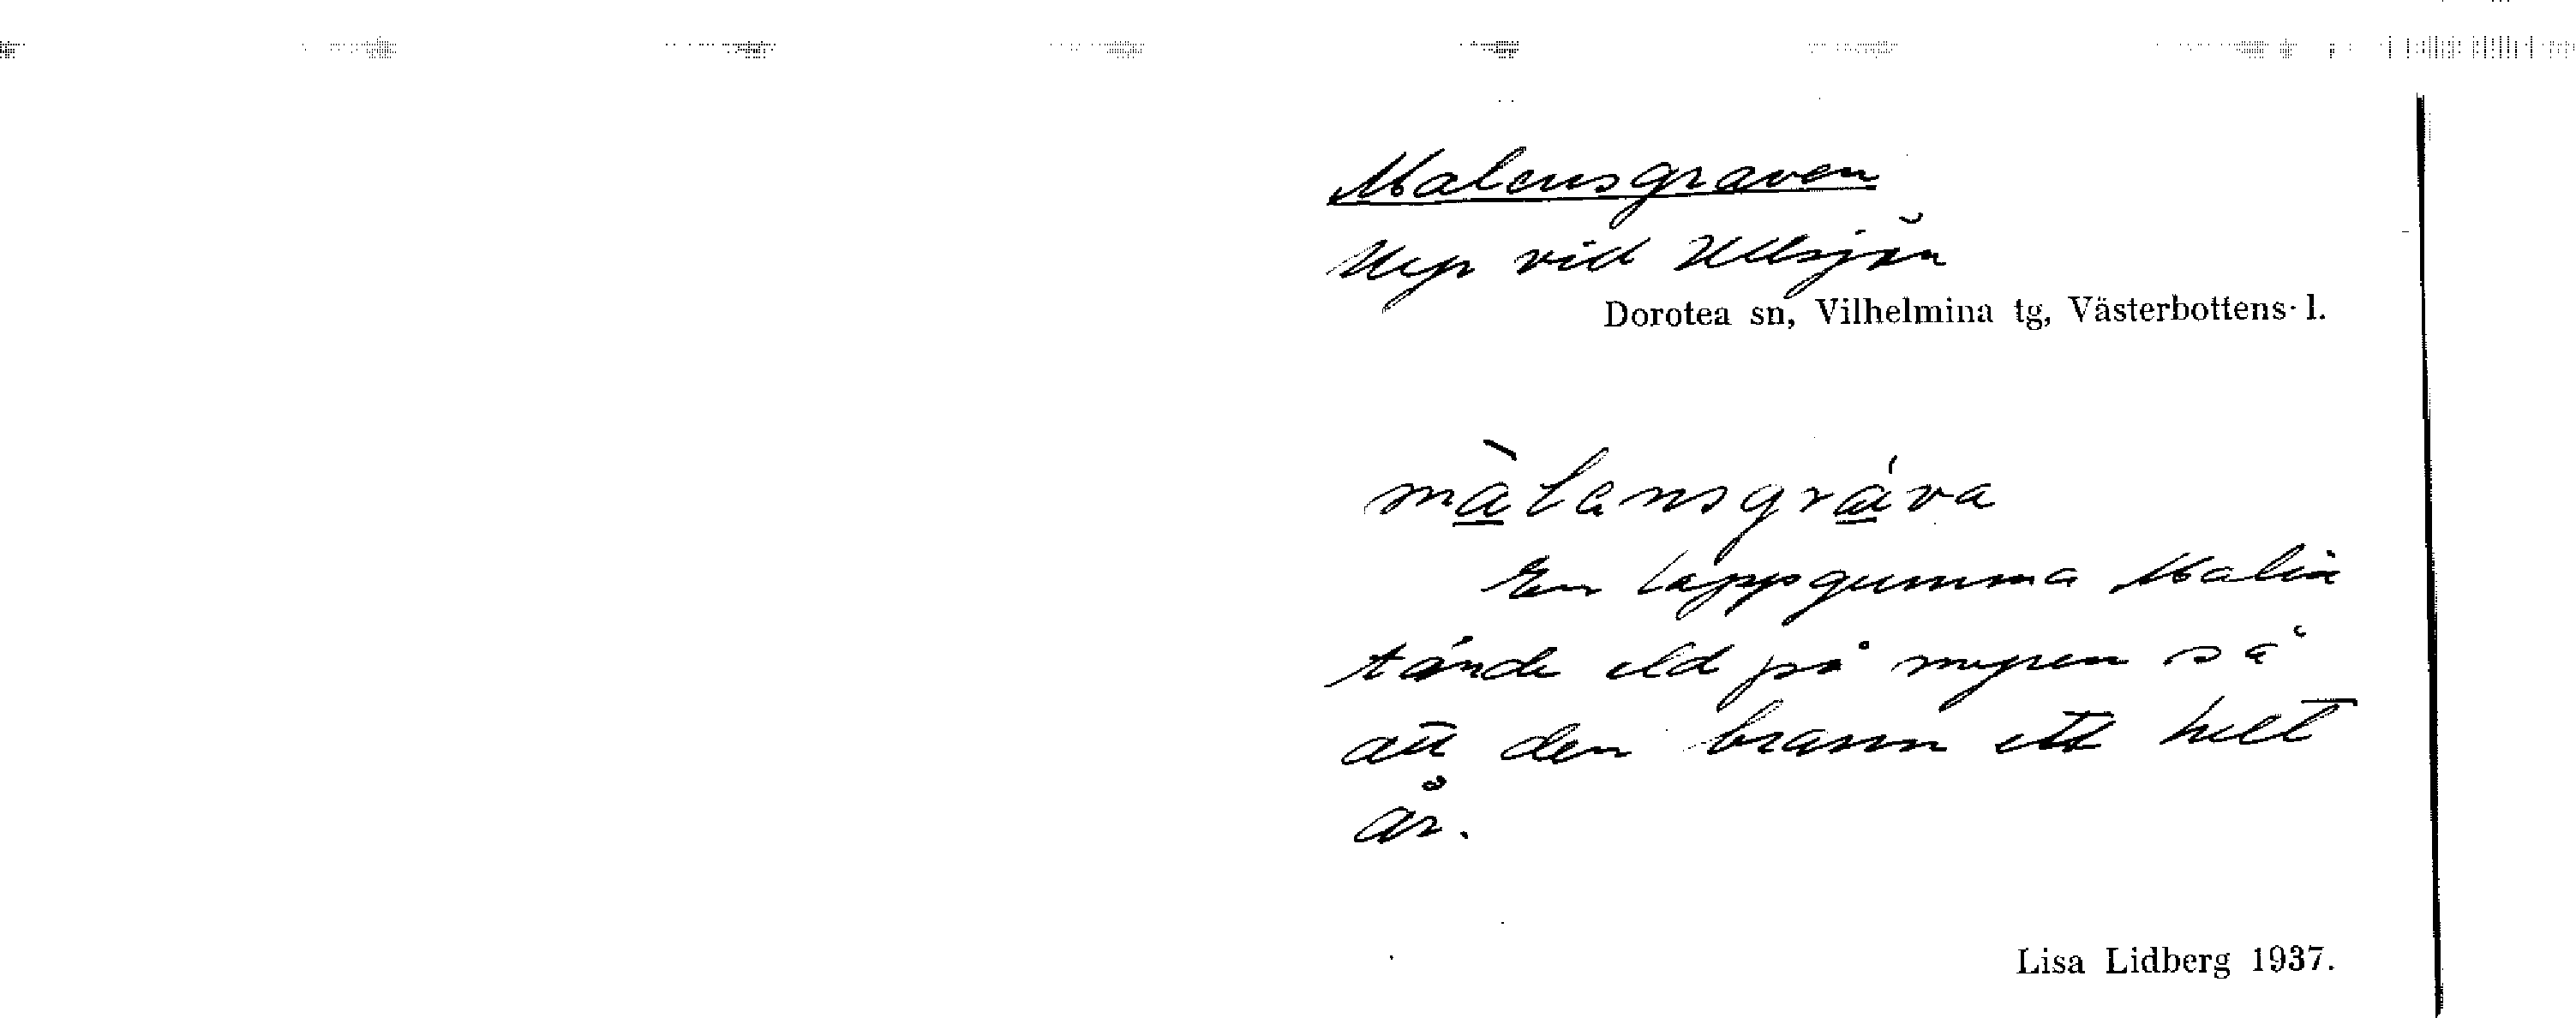 Malensgraven
Myr vid Ullsjön
Dorotea sn, Vilhelmina tg, Västerbottens l.
màlansgráva
En lappgumma Malin
tände eld på myren så
att den brann ett helt
år.
Lisa Lidberg 1937.